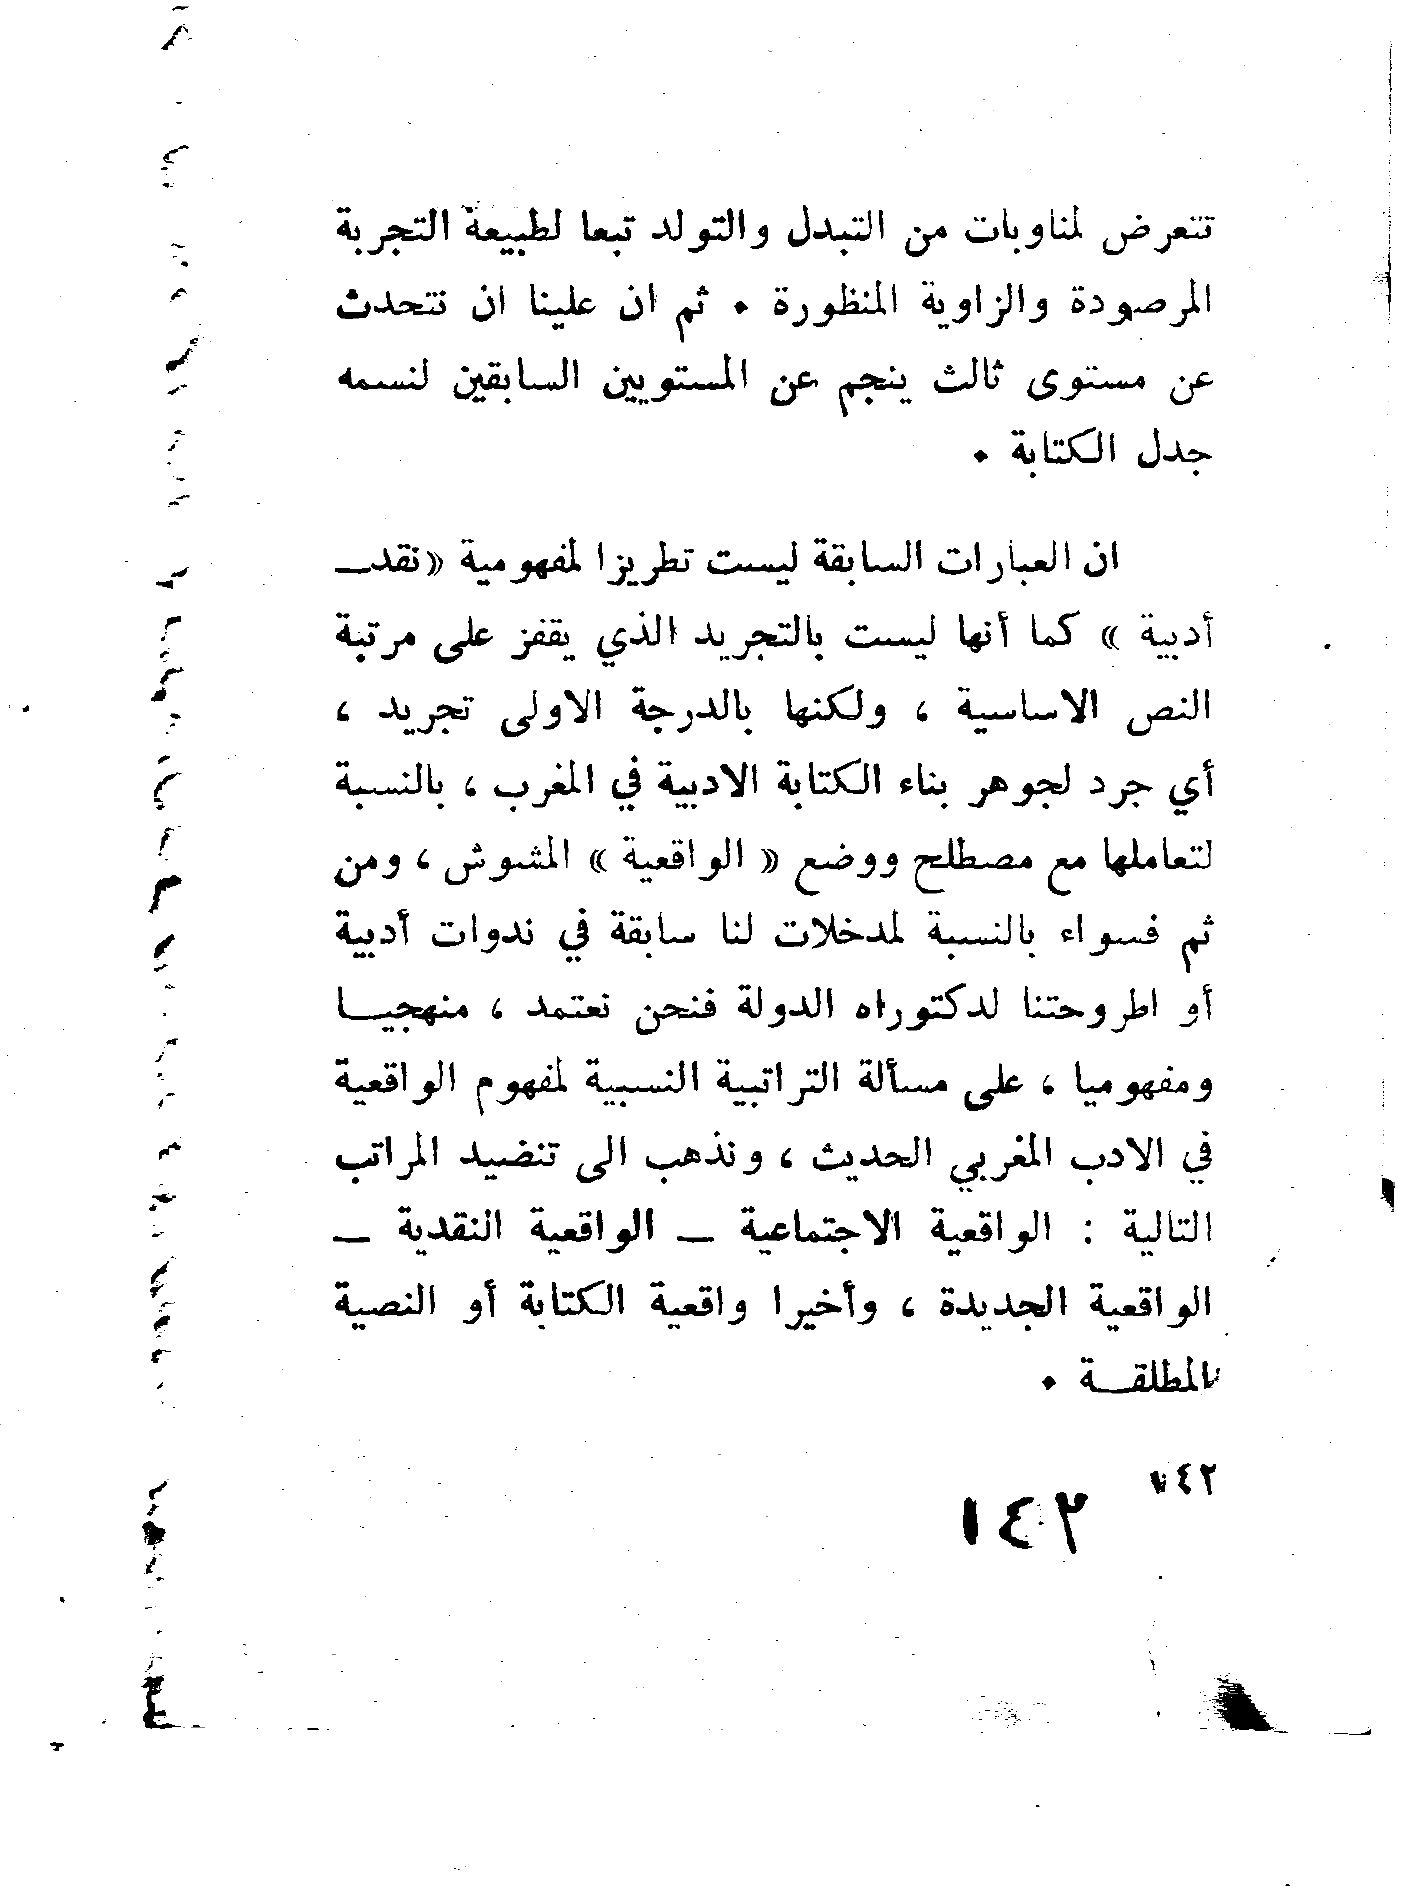 تتعرض لمناوبات من التبدل والتولد تبعا لطبيعة التجربة
المرصودة والزاوية المنظورة . ثم ان علينا ان نتحدث
عن مستوى ثالث ينجم عن المستويين السابقين لنسمه
جدل الكتابة .
ان العبارات السابقة ليست تطريزا لمفهومية «نقد ــ
أدبية » كما أنها ليست بالتجريد الذي يقفز على مرتبة
النص الاساسية ، ولكنها بالدرجة الاولى تجريد ،
أي جرد لجوهر بناء الكتابة الادبية في المغرب ، بالنسبة
لتعاملها مع مصطلح ووضع « الواقعية » المشوش ، ومن
ثم فسواء بالنسبة لمدخلات لنا سابقة في ندوات أدبية
أو اطروحتنا لدكتوراه الدولة فنحن نعتمد ، منهجيــا
ومفهوميا ، على مسألة التراتبية النسبية لمفهوم الواقعية
في الادب المغربي الحديث ، ونذهب الى تنضيد المراتب
التالية : الواقعية الاجتماعية ــ الواقعية النقدية ــ
الواقعية الجديدة ، وأخيرا واقعية الكتابة أو النصية
المطلقــة .
١٤٢
١٤٢